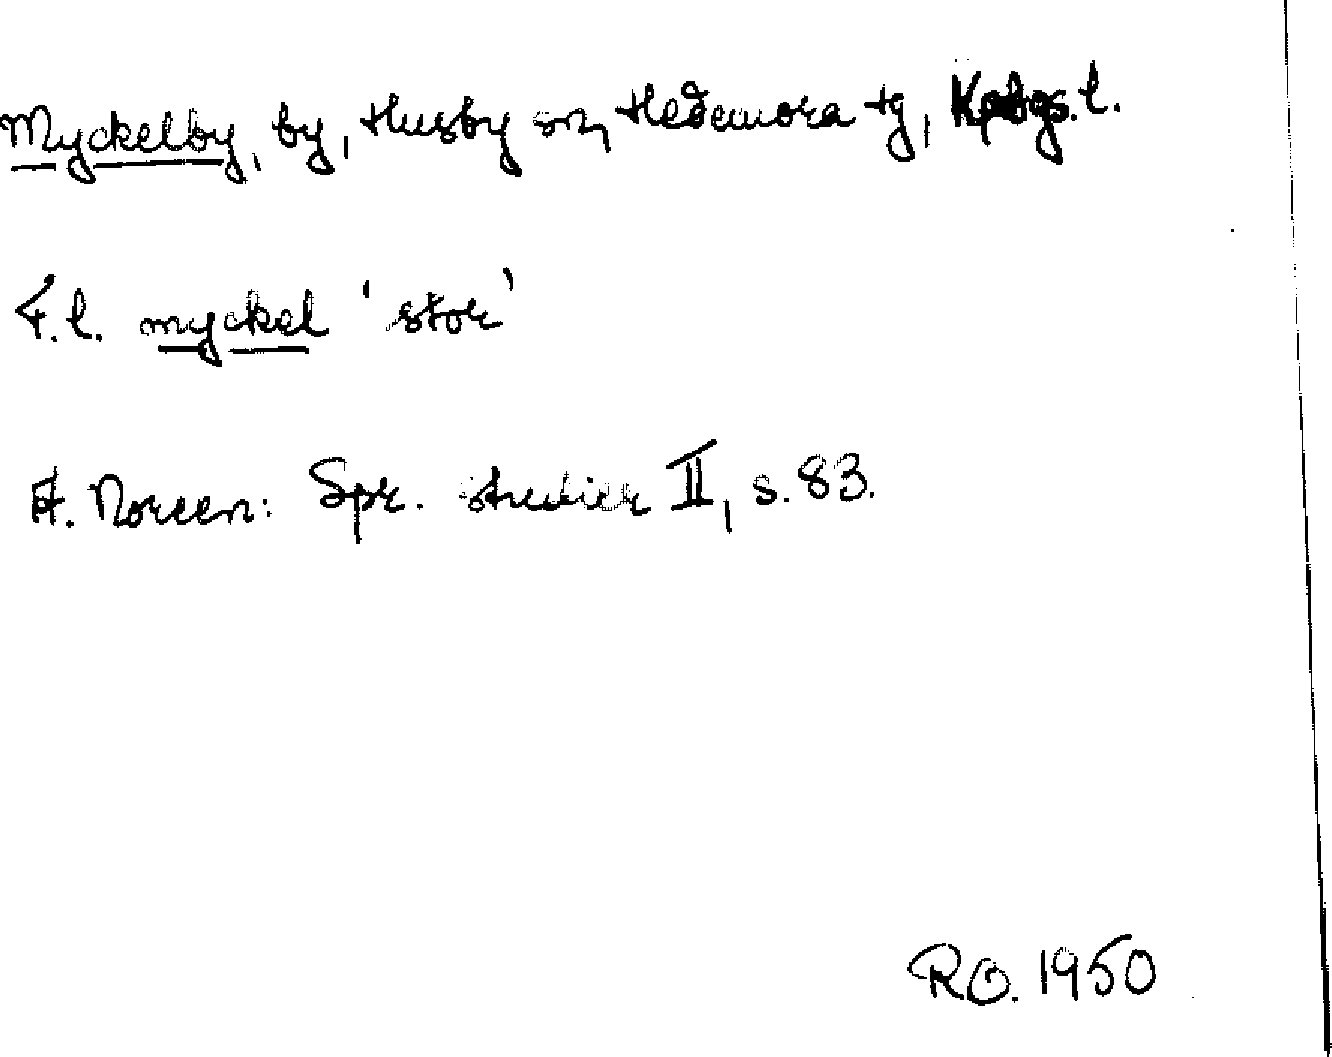 Myckelby, by, Husby sn, Hedemora tg, Kpbgs. l.
F. l. myckel 'stor'
A. Noreen: Spr. studier II, s. 83.
RO. 1950